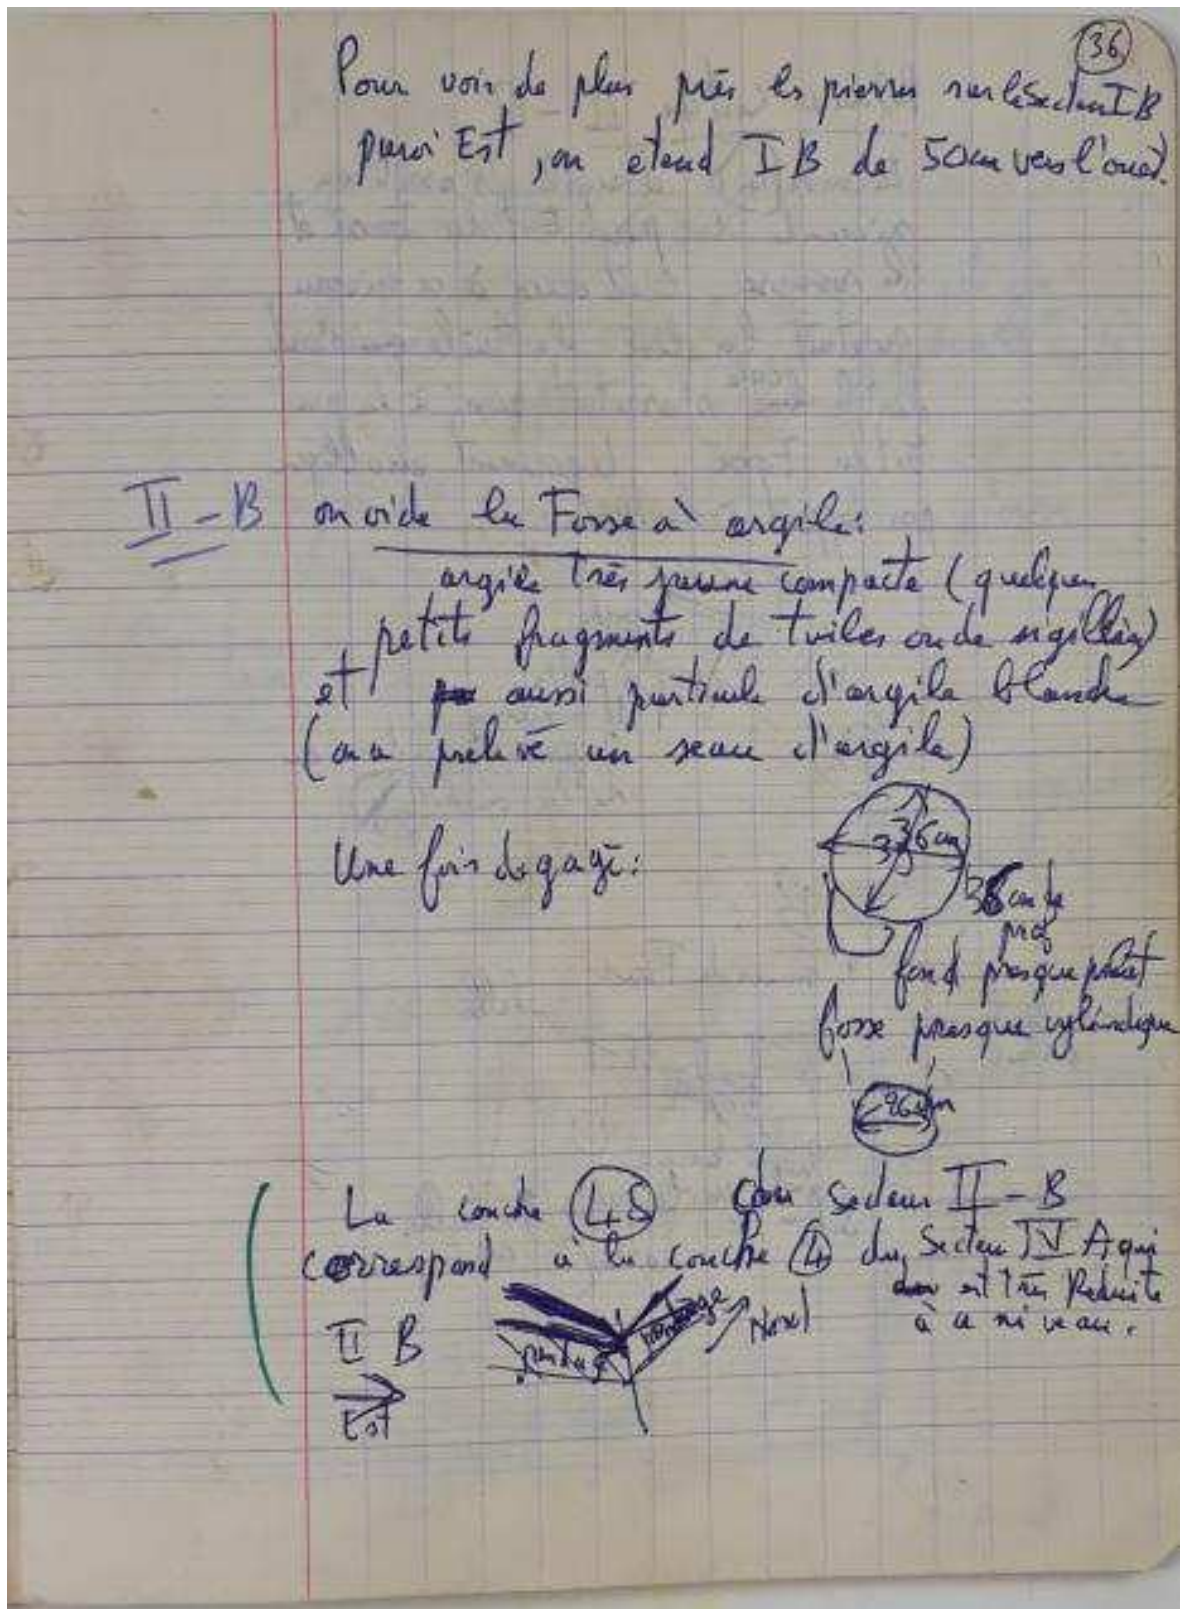 36
Pour voir de plus près les pierres sur le Secteur IB
paroi Est, on etend IB de 50cm vers l'ouest.
II - B on vide la Fosse à argile:
argile très jaune compacte (quelques
petits fragments de tuiles ou de sigillées)
et aussi particule d'argile blanche
(on a prélevé un seau d'argile)
Une fois dégagé:
36 cm
cm de
prof
fond presque plat
fosse presque cylindrique
26 cm
La couche 4S du Secteur II - B
correspond à la couche 4 du Secteur IV A qui
est très Reduite
à ce niveau.
II B
Est
pendage
pendage
Nord